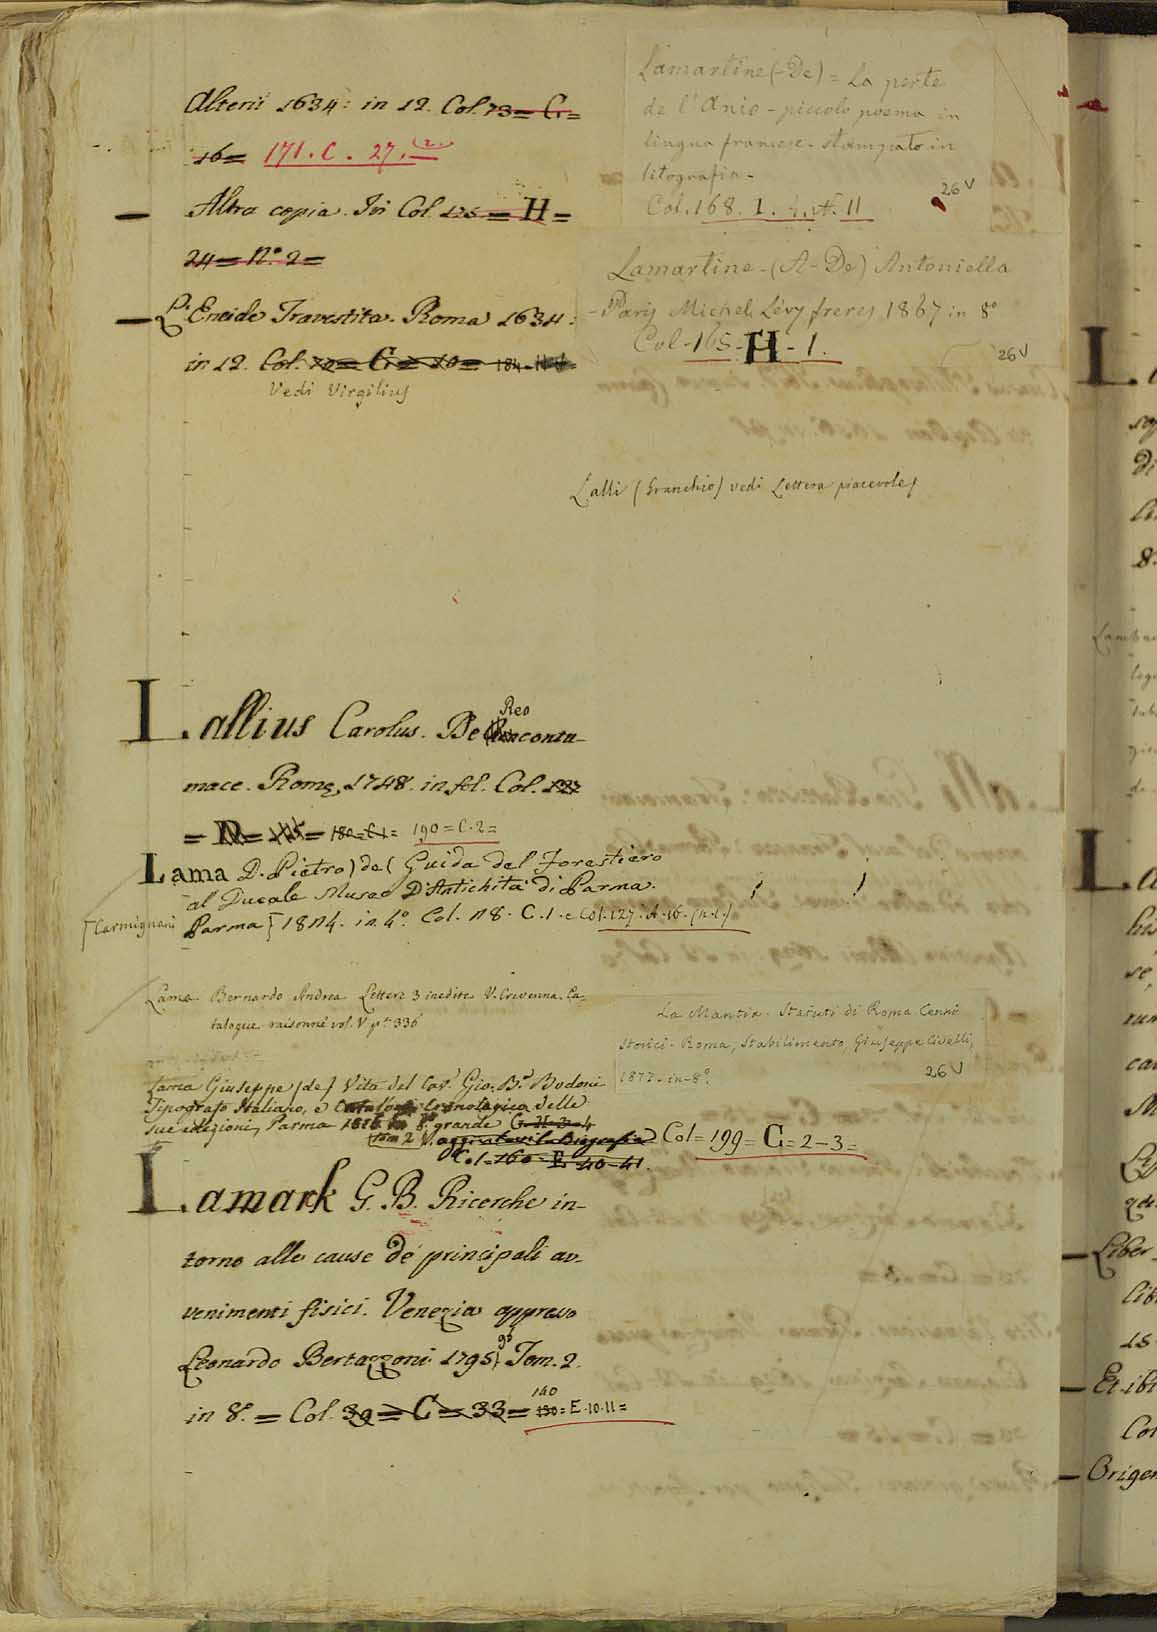 Alterii 1634: in 12. Col. 73 = G =
16 = 171. C. 27. (2.
— Altra copia. In Col. 125 = H =
24 = N.° 2 =
— L'Eneide Travestita. Roma 1634:
in 12. Col. 70 = G = 10 = 184
Vedi Virgilius
Lamartine (De) = La perte
de l'Anio - piccolo poema in
lingua francese. stampato in
litografia -
Col. 168. I. 4. A. 11
26 V
Lamartine - (A - De) Antoniella
- Paris Michel Lévy freres 1867 in 8°
Col - 165 - H - 1.
26 V
Lalli (Franchio) vedi Lettera piacevole
Lallius Carolus. De Reo contu-
mace. Romę, 1748. in fol. Col. 127
= D = 180 = C 1 = 190 = C. 2 =
Lama D. Pietro) de( Guida del Forestiero
al Ducale Museo D'Antichità di Parma.
[Carmignani
Parma [ 1824. in 4.° Col. 128. C. 1. e Col. 127. A. 16. (n. 1.)
Lama Bernardo Andrea Lettere 3 inedite V. Crevenna. Ca-
talogue raisonné vol. V p. 336
Lama Giuseppe (de) Vita del Cav.r Gio: B.a Bodoni
Tipografo Italiano, e Catalogo Cronologico delle
sue edizioni, Parma 1816 in 8.° grande
tom 2 V. aggiuntavi la Biografia Col = 199 = G = 2 - 3 =
Col. 160 - E 40-41.
La Mantia. Statuti di Roma. Cenni
Storici - Roma, Stabilimento, Giuseppe Civelli,
1877. in - 8°.
26 V
Lamark G. B. Ricerche in-
torno alle cause de' principali av-
venimenti fisici. Venezia appresso
Leonardo Bertazzoni 1795, 98 Tom. 2.
in 8.° = Col. 39 = C = 33 = 130 140 = E. 10. 11 =